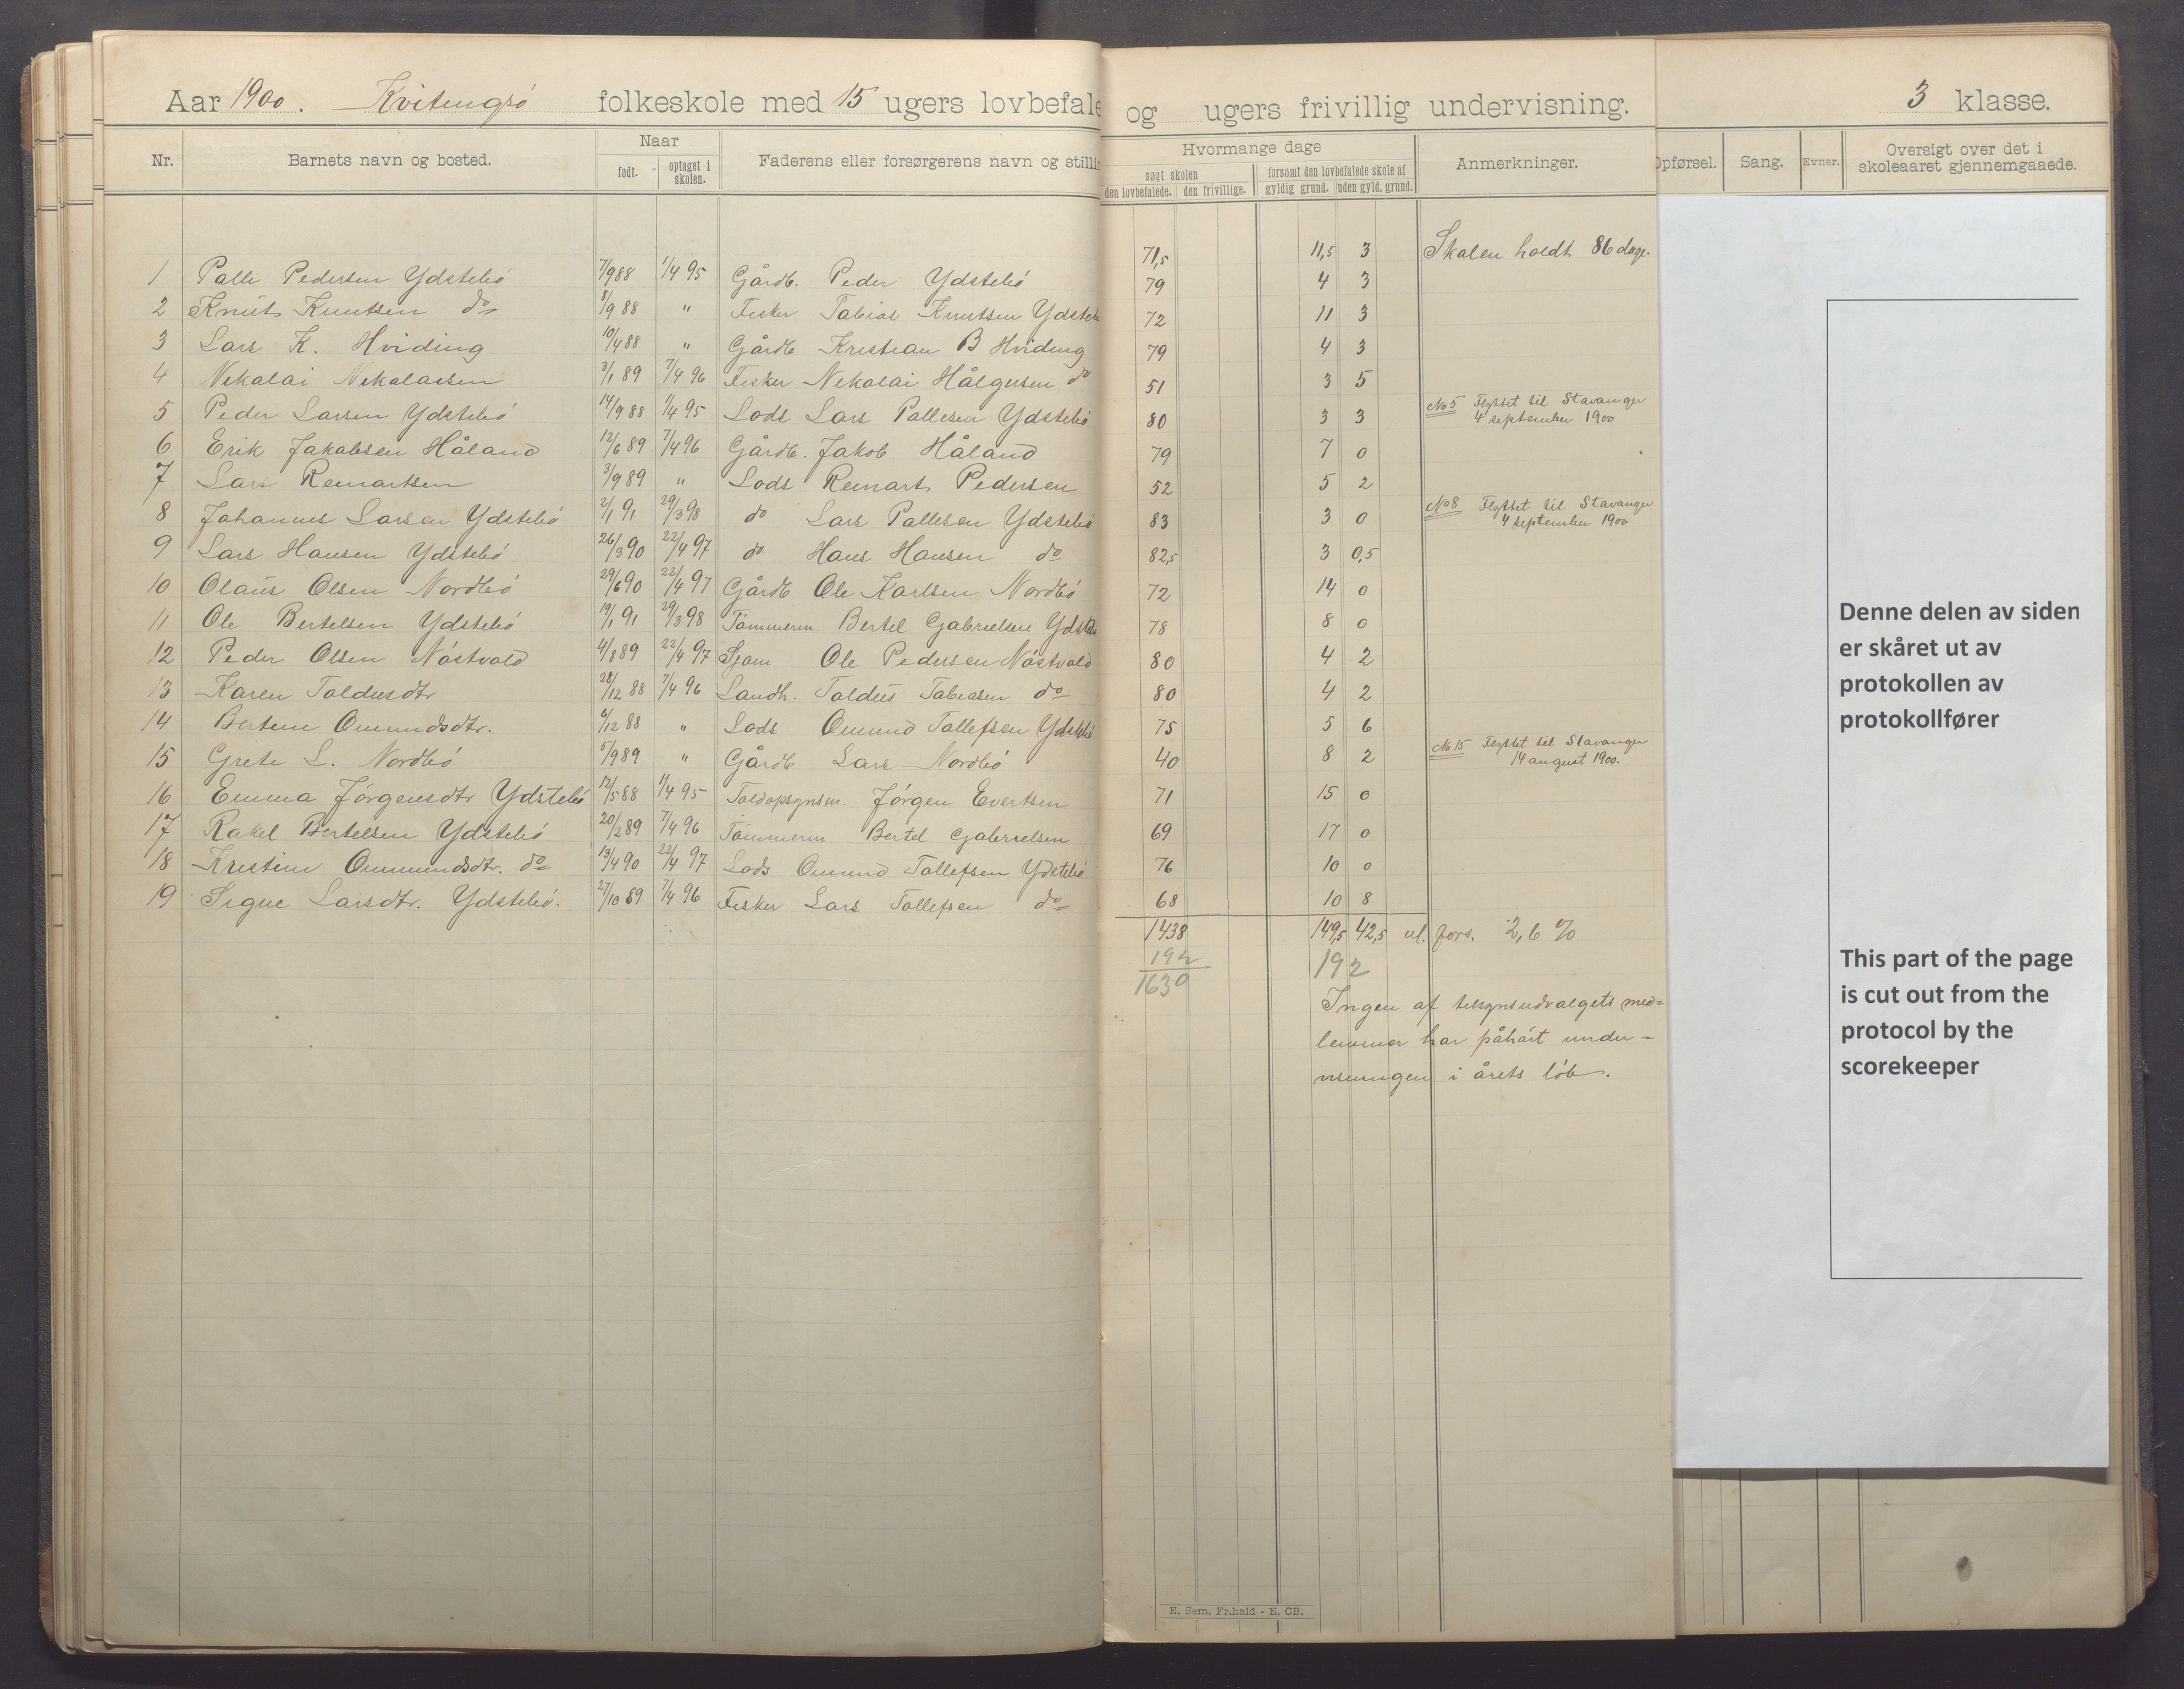 Aar 1900. Kvitingsö folkeskole med 15 ugers lovbefale og ugers frivillig undervisning. 3 klasse.
Nr. Barnets navn og bosted. Naar født. optaget i skolen. Faderens eller forsørgerens navn og stilli Hvormange dage søgt skolen den lovbefalede. den frivillige. forsømt den lovbefalede skole af gyldig grund. uden gyld. grund. Anmerkninger. Opførsel. Sang. Evner. Oversigt over det i skoleaaret gjennemgaaede.
Skolen holdt 86 dage.
1 Palle Pedersen Ydstebö 7/9 88 1/4 95 Gårdb. Peder Ydstebö 71,5 11,5 3
2 Knut Knutsen do 8/9 88 " Fisker Tobias Knutsen Ydsteb 79 4 3
3 Lars K. Hviding 10/4 88 " Gårdb Kristian B Hviding 72 11 3
4 Nikolai Nikolaisen 3/1 89 7/4 96 Fisker Nikolai Hålgersen do 79 4 3
5 Peder Larsen Ydstebö 14/9 88 1/4 95 Lods Lars Pallesen Ydstebö 51 3 5 No 5 Flyttet til Stavanger 4 september 1900
6 Erik Jakobsen Håland 12/6 89 7/4 96 Gårdb. Jakob Håland 80 3 3
7 Lars Reinartsen 3/9 89 " Lods Reinart Pedersen 79 7 0
8 Johannes Larsen Ydstebö 2/1 91 29/3 98 do Lars Pallesen Ydstebö 52 5 2 No 8 Flyttet til Stavanger 4 september 1900
9 Lars Hansen Ydstebö 26/3 90 22/4 97 do Hans Hansen do 83 3 0
10 Olaus Olsen Nordbö 29/6 90 22/4 97 Gårdb Ole Karlsen Nordbö 82,5 3 0,5
11 Ole Bertelsen Ydstebö 19/1 91 29/3 98 Tömmerm. Bertel Gabrielsen Ydsteb 72 14 0
12 Peder Olsen Nöstvold 4/8 89 22/4 97 Sjöm Ole Pedersen Nöstvold 78 8 0
13 Karen Toldusdtr 28/12 88 7/4 96 Landh. Toldus Tobiasen do 80 4 2
14 Bertine Omundsdtr. 6/12 88 " Lods Omund Tollefsen Ydstebö 80 4 2
15 Grete L. Nordbö 5/9 89 " Gårdb Lars Nordbö 75 5 6 No 15 Flyttet til Stavanger 14 august 1900.
16 Emma Jörgensdtr Ydstebö 12/5 88 1/4 95 Toldopsynsm. Jörgen Evertsen 40 8 2
17 Rakel Bertelsen Ydstebö 20/2 89 7/4 96 Tömmerm Bertel Gabrielsen 71 15 0
18 Kristine Ommundsdtr. do 13/4 90 22/4 97 Lods Omund Tollefsen Ydstebö 69 17 0
19 Signe Larsdtr. Ydstebö. 27/10 89 7/4 96 Fisker Lars Tollefsen do 76 10 0
68 10 8
1438 149,5 42,5 ul. fors. 2,6 %
192 192
1630
Ingen af tilsynsudvalgets med=
lemmer har påhört under=
visningen i årets löb.
E. Sem, Fr.hald - E. CB.
Denne delen av siden
er skåret ut av
protokollen av
protokollfører
This part of the page
is cut out from the
protocol by the
scorekeeper